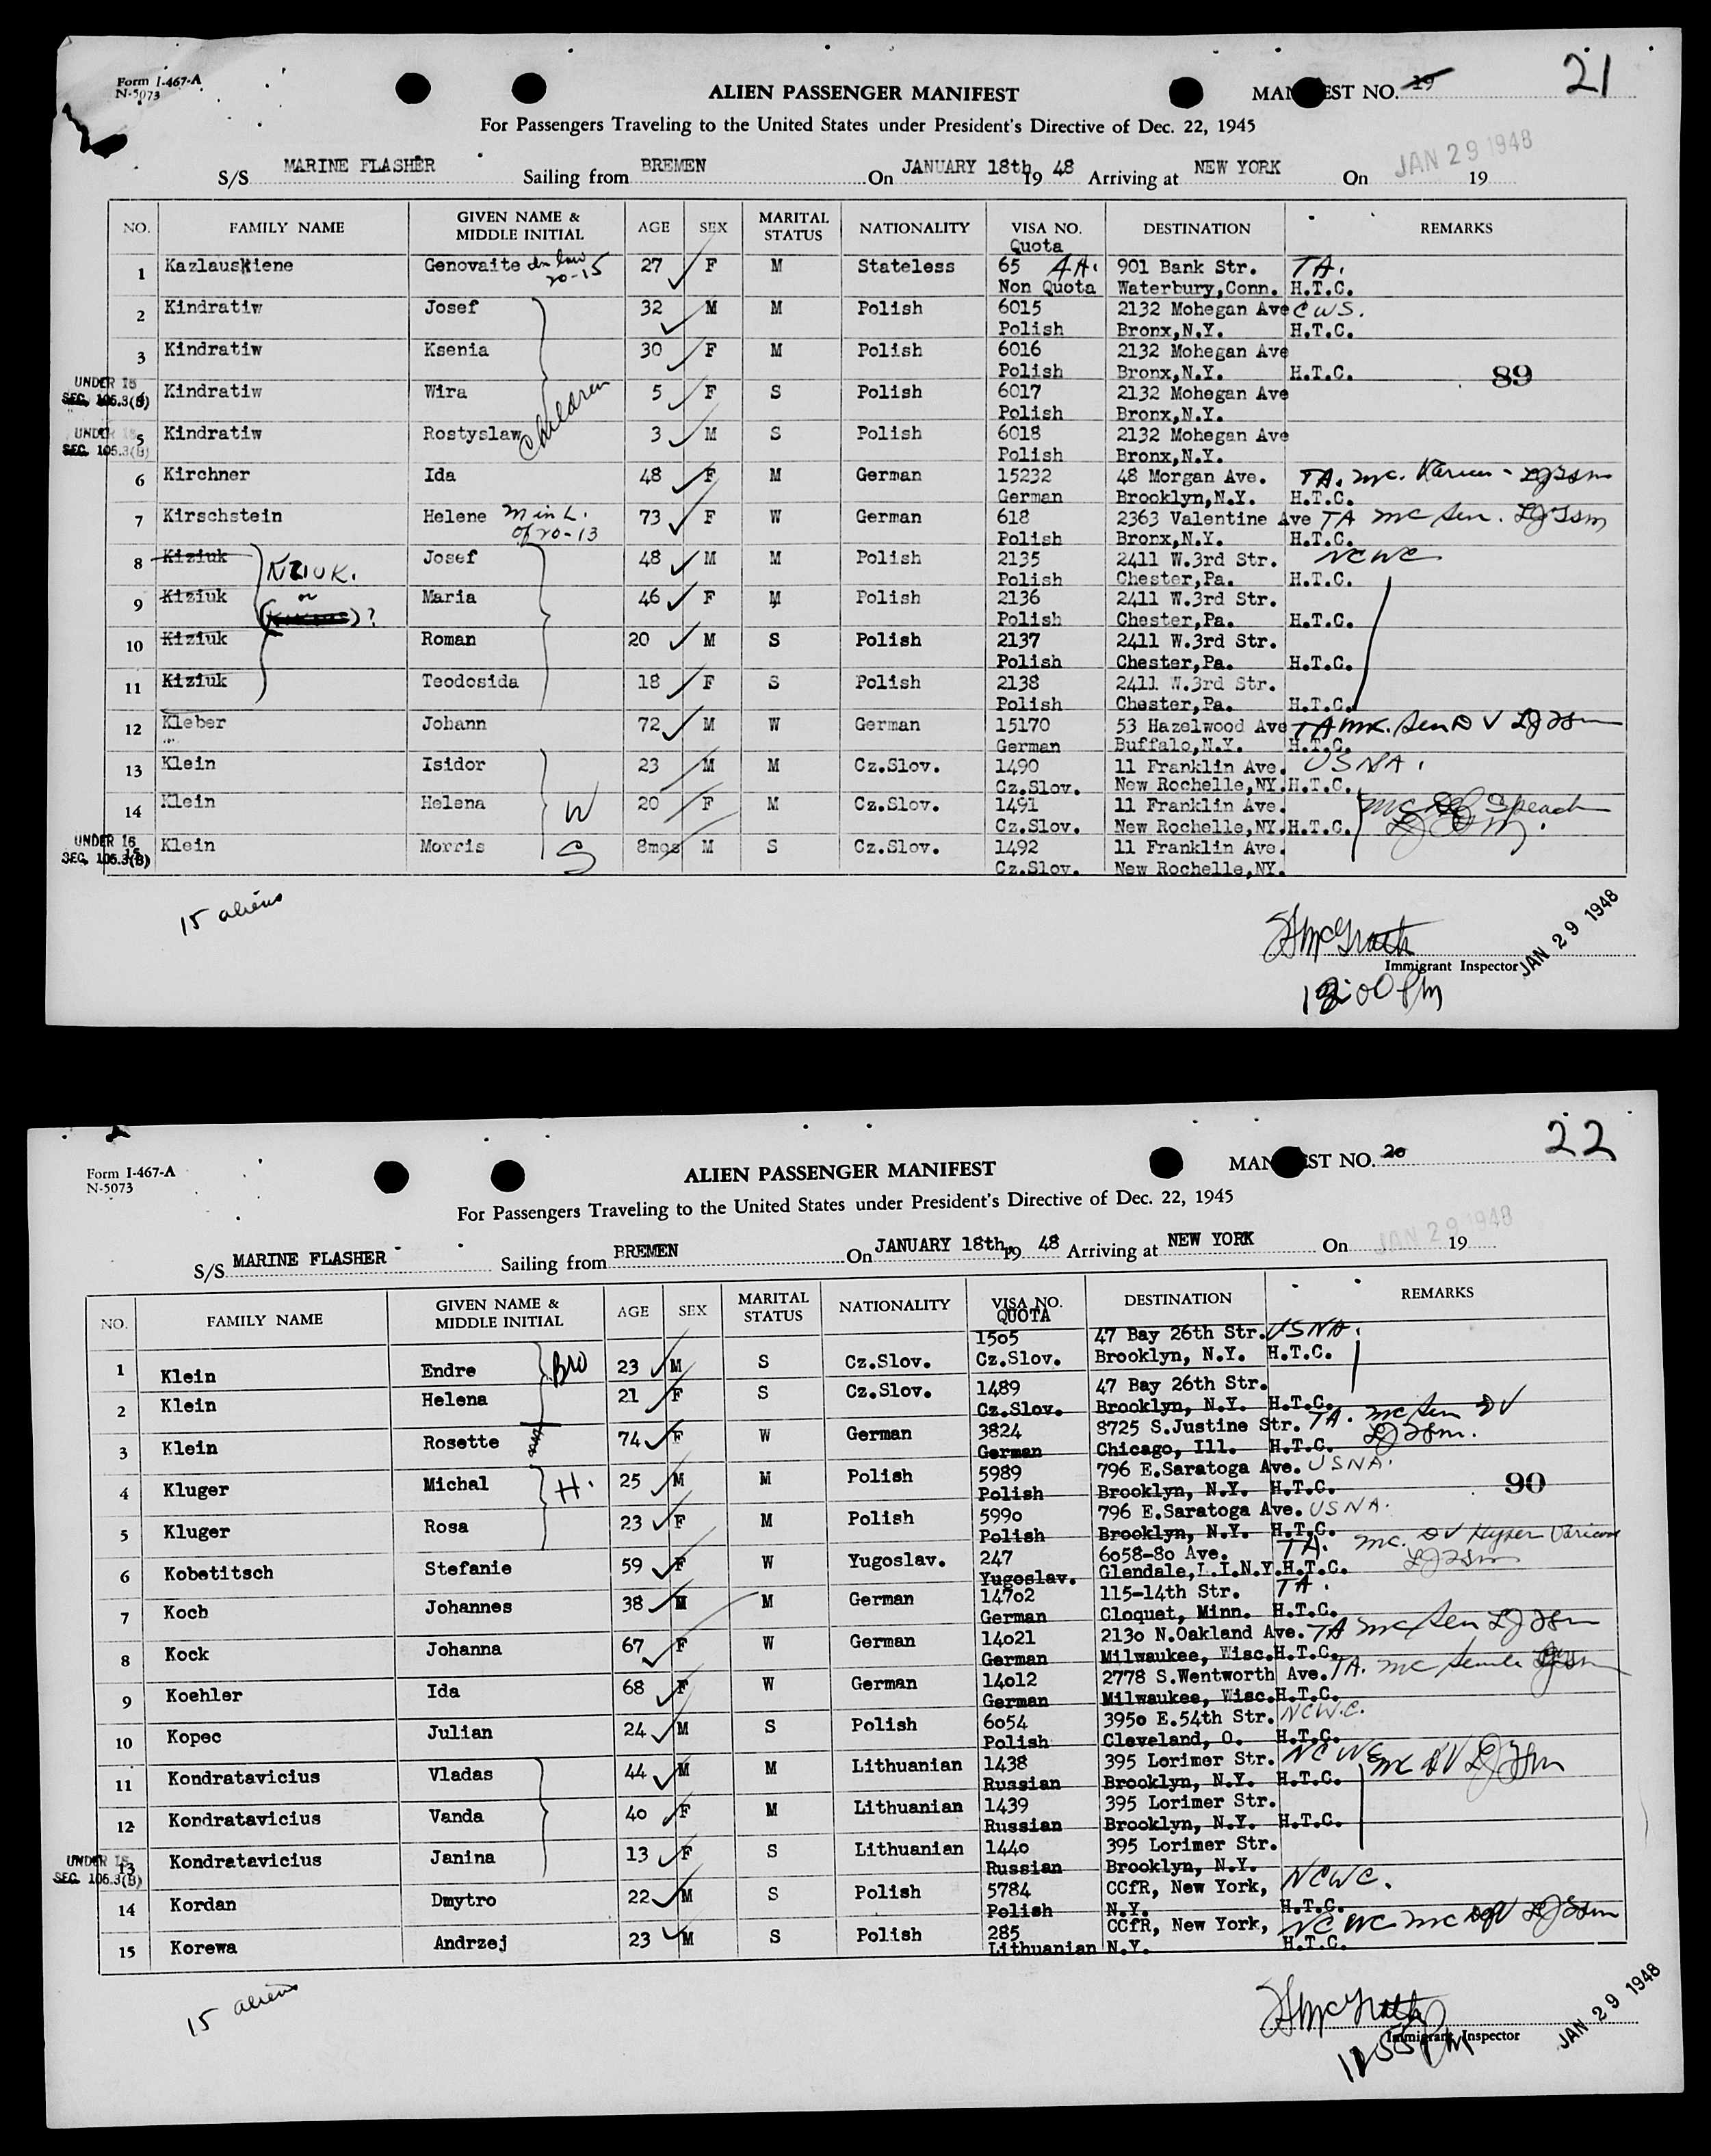 Form I-467-A
N-5073
ALIEN PASSENGER MANIFEST
MANIFEST NO. 19
21
For Passengers Traveling to the United States under President's Directive of Dec. 22, 1945
JAN 29 1948
S/S MARINE FLASHER Sailing from BREMEN On JANUARY 18th 19 48 Arriving at NEW YORK On 19
NO. FAMILY NAME GIVEN NAME & MIDDLE INITIAL AGE SEX MARITAL STATUS NATIONALITY VISA NO. DESTINATION REMARKS
Quota
1 Kazlauskiene Genovaite 27 F M Stateless 65 901 Bank Str. TA.
20-15 Non Quota Waterbury,Conn. H.T.C.
2 Kindratiw Josef 32 M M Polish 6015 2132 Mohegan Ave CWS.
Polish Bronx,N.Y. H.T.C.
3 Kindratiw Ksenia 30 F M Polish 6016 2132 Mohegan Ave
Polish Bronx,N.Y. H.T.C. 89
UNDER 16
SEC. 105.3(B)
4 Kindratiw Wira children 5 F S Polish 6017 2132 Mohegan Ave
Polish Bronx,N.Y.
UNDER 16
SEC. 105.3(B)
5 Kindratiw Rostyslaw 3 M S Polish 6018 2132 Mohegan Ave
Polish Bronx,N.Y.
6 Kirchner Ida 48 F M German 15232 48 Morgan Ave. TA. mc.
German Brooklyn,N.Y. H.T.C.
7 Kirschstein Helene M in L. 73 F W German 618 2363 Valentine Ave TA mc Sen.
of 20-13 Polish Bronx,N.Y. H.T.C.
8 Kiziuk Josef 48 M M Polish 2135 2411 W.3rd Str. NCWC
KZIUK. Polish Chester,Pa. H.T.C.
9 Kiziuk or Maria 46 F M Polish 2136 2411 W.3rd Str.
( )? Polish Chester,Pa. H.T.C.
10 Kiziuk Roman 20 M S Polish 2137 2411 W.3rd Str.
Polish Chester,Pa. H.T.C.
11 Kiziuk Teodosida 18 F S Polish 2138 2411 W.3rd Str.
Polish Chester,Pa. H.T.C.
12 Kleber Johann 72 M W German 15170 53 Hazelwood Ave TA mc. Sen DV
German Buffalo,N.Y. H.T.C.
13 Klein Isidor 23 M M Cz.Slov. 1490 11 Franklin Ave. USNA.
Cz.Slov. New Rochelle,NY. H.T.C.
14 Klein Helena W 20 F M Cz.Slov. 1491 11 Franklin Ave. mc
Cz.Slov. New Rochelle,NY. H.T.C.
UNDER 16
SEC. 105.3(B)
15 Klein Morris S 8mos M S Cz.Slov. 1492 11 Franklin Ave.
Cz.Slov. New Rochelle,NY.
15 aliens
McGrath
Immigrant Inspector
JAN 29 1948
Form I-467-A
N-5073
ALIEN PASSENGER MANIFEST
MANIFEST NO. 20
22
For Passengers Traveling to the United States under President's Directive of Dec. 22, 1945
JAN 29 1948
S/S MARINE FLASHER Sailing from BREMEN On JANUARY 18th, 19 48 Arriving at NEW YORK On 19
NO. FAMILY NAME GIVEN NAME & MIDDLE INITIAL AGE SEX MARITAL STATUS NATIONALITY VISA NO. DESTINATION REMARKS
QUOTA
1505 47 Bay 26th Str. USNA.
1 Klein Endre Bro 23 M S Cz.Slov. Cz.Slov. Brooklyn, N.Y. H.T.C.
2 Klein Helena 21 F S Cz.Slov. 1489 47 Bay 26th Str.
Cz.Slov. Brooklyn, N.Y. H.T.C.
3 Klein Rosette 74 F W German 3824 8725 S.Justine Str. TA. mc Sen DV
German Chicago, Ill. H.T.C.
4 Kluger Michal H. 25 M M Polish 5989 796 E.Saratoga Ave. USNA.
Polish Brooklyn, N.Y. H.T.C. 90
5 Kluger Rosa 23 F M Polish 5990 796 E.Saratoga Ave. USNA.
Polish Brooklyn, N.Y. H.T.C.
6 Kobetitsch Stefanie 59 F W Yugoslav. 247 6058-80 Ave. TA. mc. DV
Yugoslav. Glendale,L.I.N.Y. H.T.C.
7 Koch Johannes 38 M M German 14702 115-14th Str. TA.
German Cloquet, Minn. H.T.C.
8 Kock Johanna 67 F W German 14021 2130 N.Oakland Ave. TA mc Sen
German Milwaukee, Wisc. H.T.C.
9 Koehler Ida 68 F W German 14012 2778 S.Wentworth Ave. TA. mc
German Milwaukee, Wisc. H.T.C.
10 Kopec Julian 24 M S Polish 6054 3950 E.54th Str. NCWC.
Polish Cleveland, O. H.T.C.
11 Kondratavicius Vladas 44 M M Lithuanian 1438 395 Lorimer Str. NCWC mc DV
Russian Brooklyn, N.Y. H.T.C.
12 Kondratavicius Vanda 40 F M Lithuanian 1439 395 Lorimer Str.
Russian Brooklyn, N.Y. H.T.C.
UNDER 16
SEC. 105.3(B)
13 Kondratavicius Janina 13 F S Lithuanian 1440 395 Lorimer Str.
Russian Brooklyn, N.Y.
14 Kordan Dmytro 22 M S Polish 5784 CCfR, New York, NCWC.
Polish N.Y. H.T.C.
15 Korewa Andrzej 23 M S Polish 285 CCfR, New York, NCWC mc
Lithuanian N.Y. H.T.C.
15 aliens
McGrath
Immigrant Inspector
JAN 29 1948